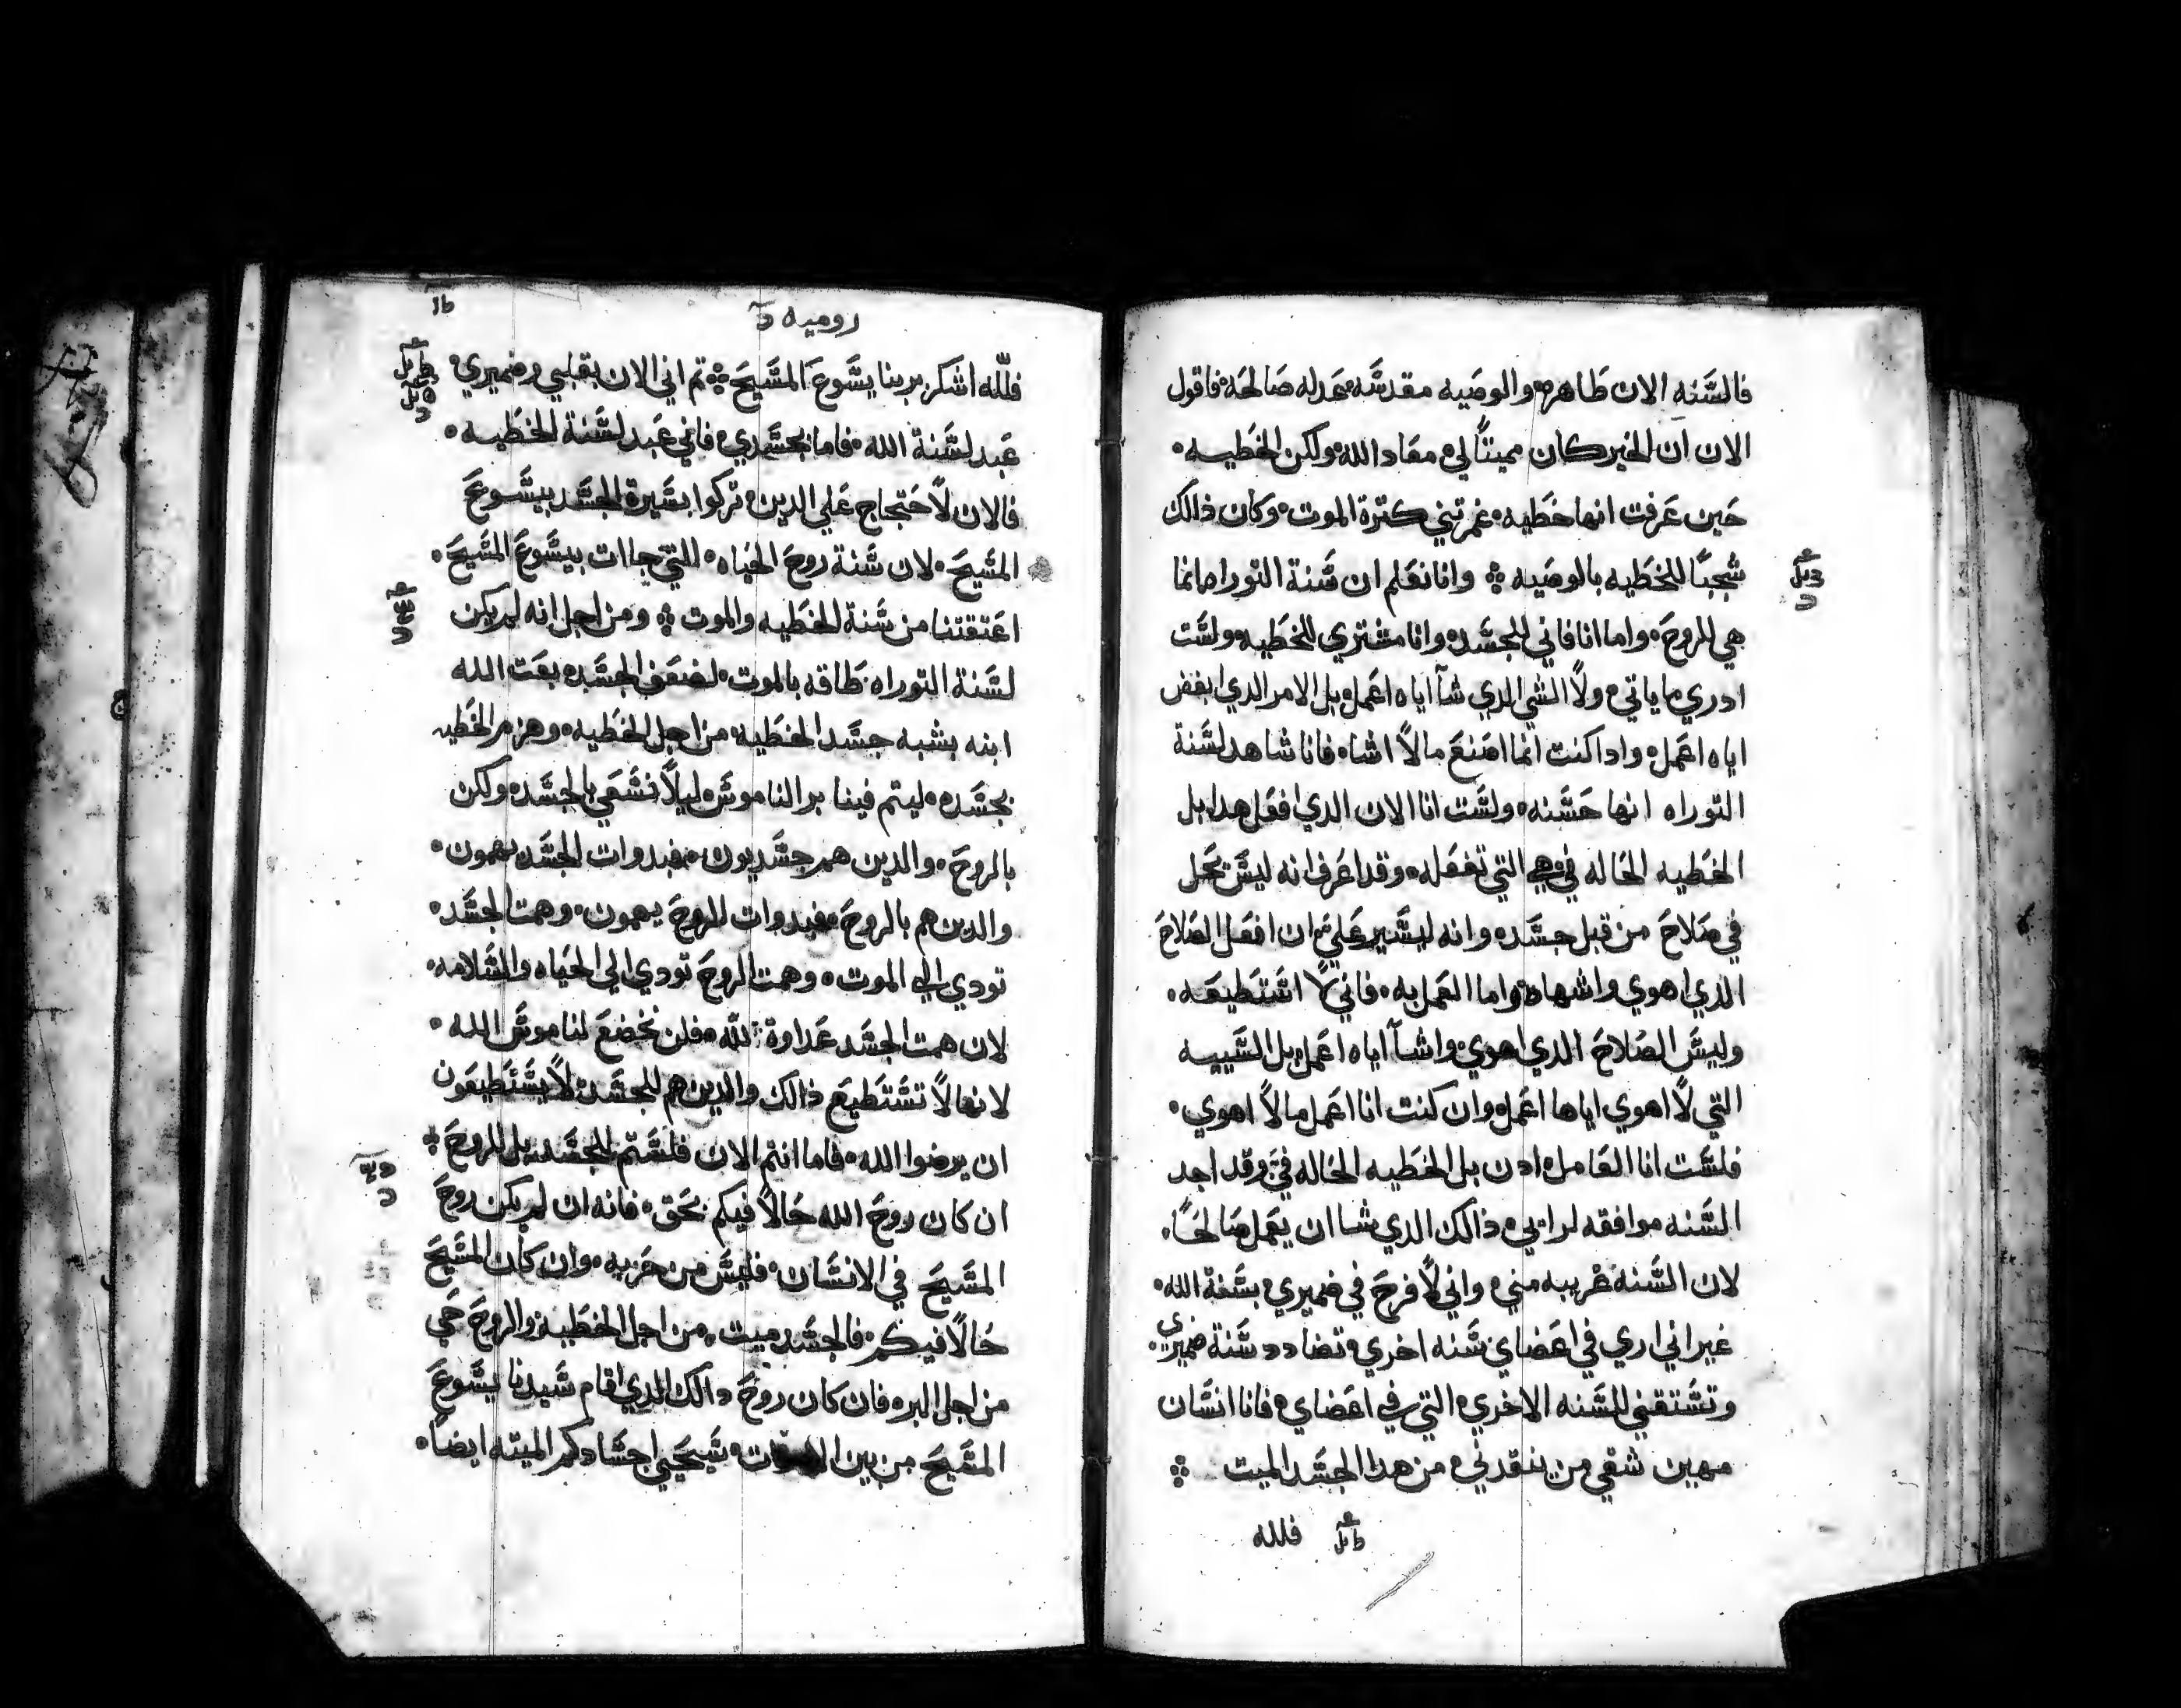 فالسَّنه الان طَاهره والوصَيه مقدسَّه عَدله صَالحَه فاقول
الان ان الخير كان مميتاً لي معَاد الله ولكن الخَطيه
حَين عَرفت انها خَطيه غمرتني كترة الموت وكان ذالك
شجبًا للخطَيه بالوصَيه وانا نعَلم ان سَّنة التوراه انما
هي للروحَ واما انا فاني للجسَّد وانا مشتري للخطَيه ولسَّت
ادري ما ياتي ولاً الشي الدي شآ اياه اعَمل بل الامر الدي ابغض
اياه اعَمل وادا كنت انما اصَنعَ ما لاً اشاه فانا شاهد لسَّنة
التوراه انها حَسَّنه ولسَّت انا الان الدي افعَل هدا بل
الخطَيه الحَاله في هي التي تفعَله وقد اعَرف انه ليسَّ يحَل
في صَلاحَ من قبل جسَّده وانه ليسَّير عَلي ان افعَل الصَلاحَ
الدي اهوي واشهاه واما العَمل به فاني لاً اسَّتطَيعَه
وليسَّ الصَلاحَ الدي اهوي واشآ اياه اعَمل بل السَّييه
التي لاً اهوي اياها اعَمل وان كنت انا اعَمل ما لاً اهوي
فلسَّت انا العَامل ادن بل الخطَيه الحَاله في وقد اجد
السَّنه موافقه لرايي ذالك الدي شا ان يعَمل صَالحًَا
لان السَّنه غريبه مني واني لاً فرحَ في ضميري بسَّنة الله
غير اني اري في اعَضاي سَّنه اخري تضادد سَّنة ضميري
وتسَّتقني للسَّنه الاخري التي في اعَضاي فانا انسَّان
مهين شقي من ينقدني من هدا الجسَّد الميت
فلله
روميه
فللّه اشكر بربنا يسَّوعَ المسَّيحَ تم اني الان بقلبي وضميري
عَبد لسَّنة الله فاما بجسَّدي فاني عَبد لسَّنة الخطَيه
فالان لاً حَتجاج عَلي الدين تركوا بسَّيرة الجسَّد بيسَّوعَ
المسَّيحَ لان سَّنة روحَ الحَياه التي جاات بيسَّوعَ المسَّيحَ
اعَتقتنا من سَّنة الخطَيه والموت ومن اجل انه لم يكن
لسَّنة التوراه طَاقه بالموت لضعَف الجسَّد بعَت الله
ابنه بشبه جسَّد الخطَيه من اجل الخطَيه وهزم الخطَيه
بجسَّده ليتم فينا بر الناموسَّ ليلاً نسَّعَي بالجسَّد ولكن
بالروحَ والدين هم جسَّديون فبدوات الجسَّد يهمون
والدين هم بالروحَ فبدوات الروحَ يهمون وهمت الجسَّد
تودي الي الموت وهمت الروحَ تودي الي الحَياه والسَّلامه
لان همت الجسَّد عَداوة لله فلن تخضعَ لناموسَّ الله
لانها لاً تسَّتطَيعَ ذالك والدين هم للجسَّد لاً يسَّتطَيعَون
ان يرضوا الله فاما انتم الان فلسَّتم للجسَّد بل للروحَ
ان كان روحَ الله حَالاً فيكم بحَق فانه ان لم يكن روحَ
المسَّيحَ في الانسَّان فليسَّ من حَزبه وان كان المسَّيحَ
حَالاً فيكم فالجسَّد ميت من اجل الخطَيه والروحَ حَي
من اجل البر فان كان روحَ دالك الدي اقام سَّيدنا يسَّوعَ
المسَّيحَ من بين الاموات سَّيحَيي اجسَّادكم الميته ايضاً